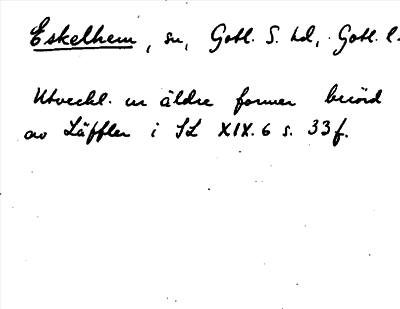 Eskelhem, sn, Gotl. S. hd, Gotl. l.
Utveckl. ur äldre former berörd
av Läffler i SL XIX.6 s. 33 f.